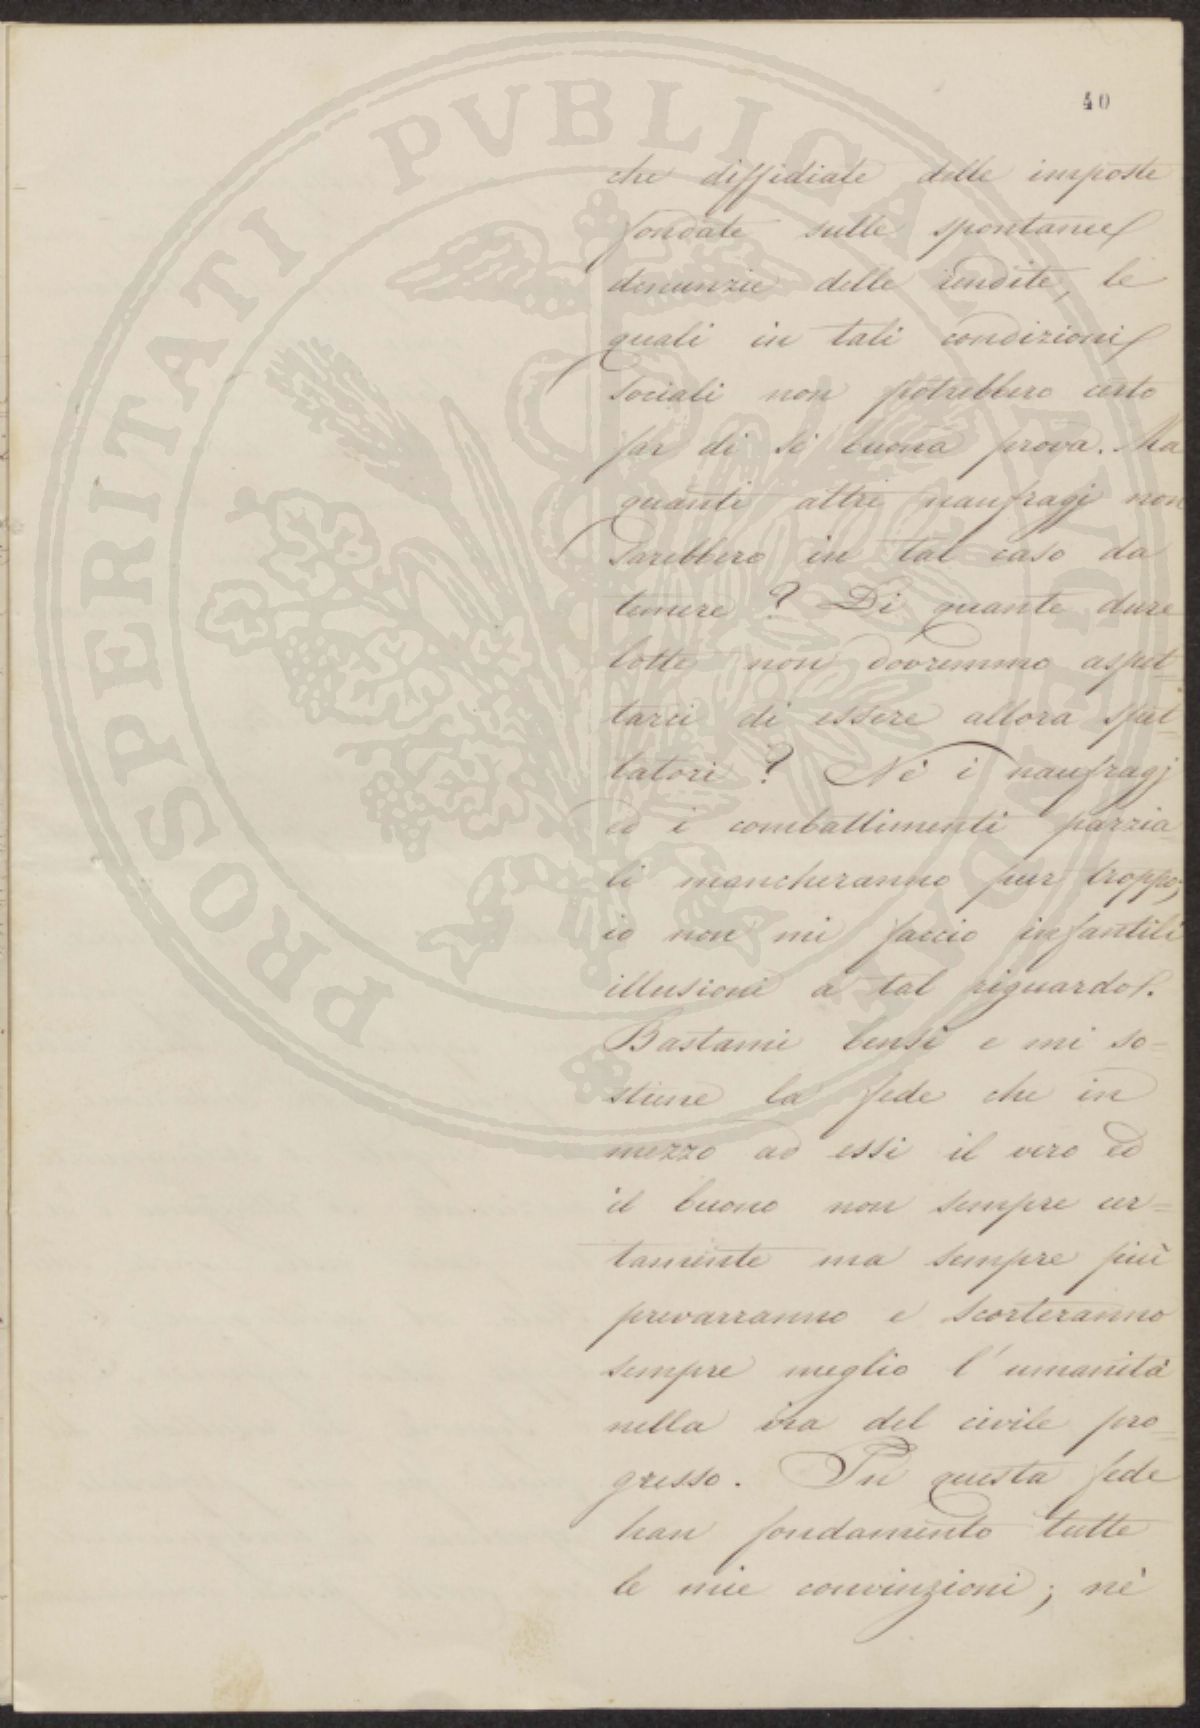 40
che diffidiate delle imposte
fondate sulle spontanee
denunzie delle rendite, le
quali in tali condizioni
sociali non potrebbero certo
far di sé buona prova. Ma
quanti altri naufragj non
sarebbero in tal caso da
temere? Di quante dure
lotte non dovremmo aspet-
tarci di essere allora spet-
tatori? Nè i naufragj
ed i combattimenti parzia-
li mancheranno pur troppo;
io non mi faccio infantili
illusioni a tal riguardo.
Bastami bensì e mi so-
stiene la fede che in
mezzo ad essi il vero ed
il buono non sempre cer-
tamente ma sempre più
prevarranno e scorteranno
sempre meglio l'umanità
nella via del civile pro-
gresso. In questa fede
han fondamento tutte
le mie convinzioni; nè
PROSPERITATI PVBLICAE AVGENDAE